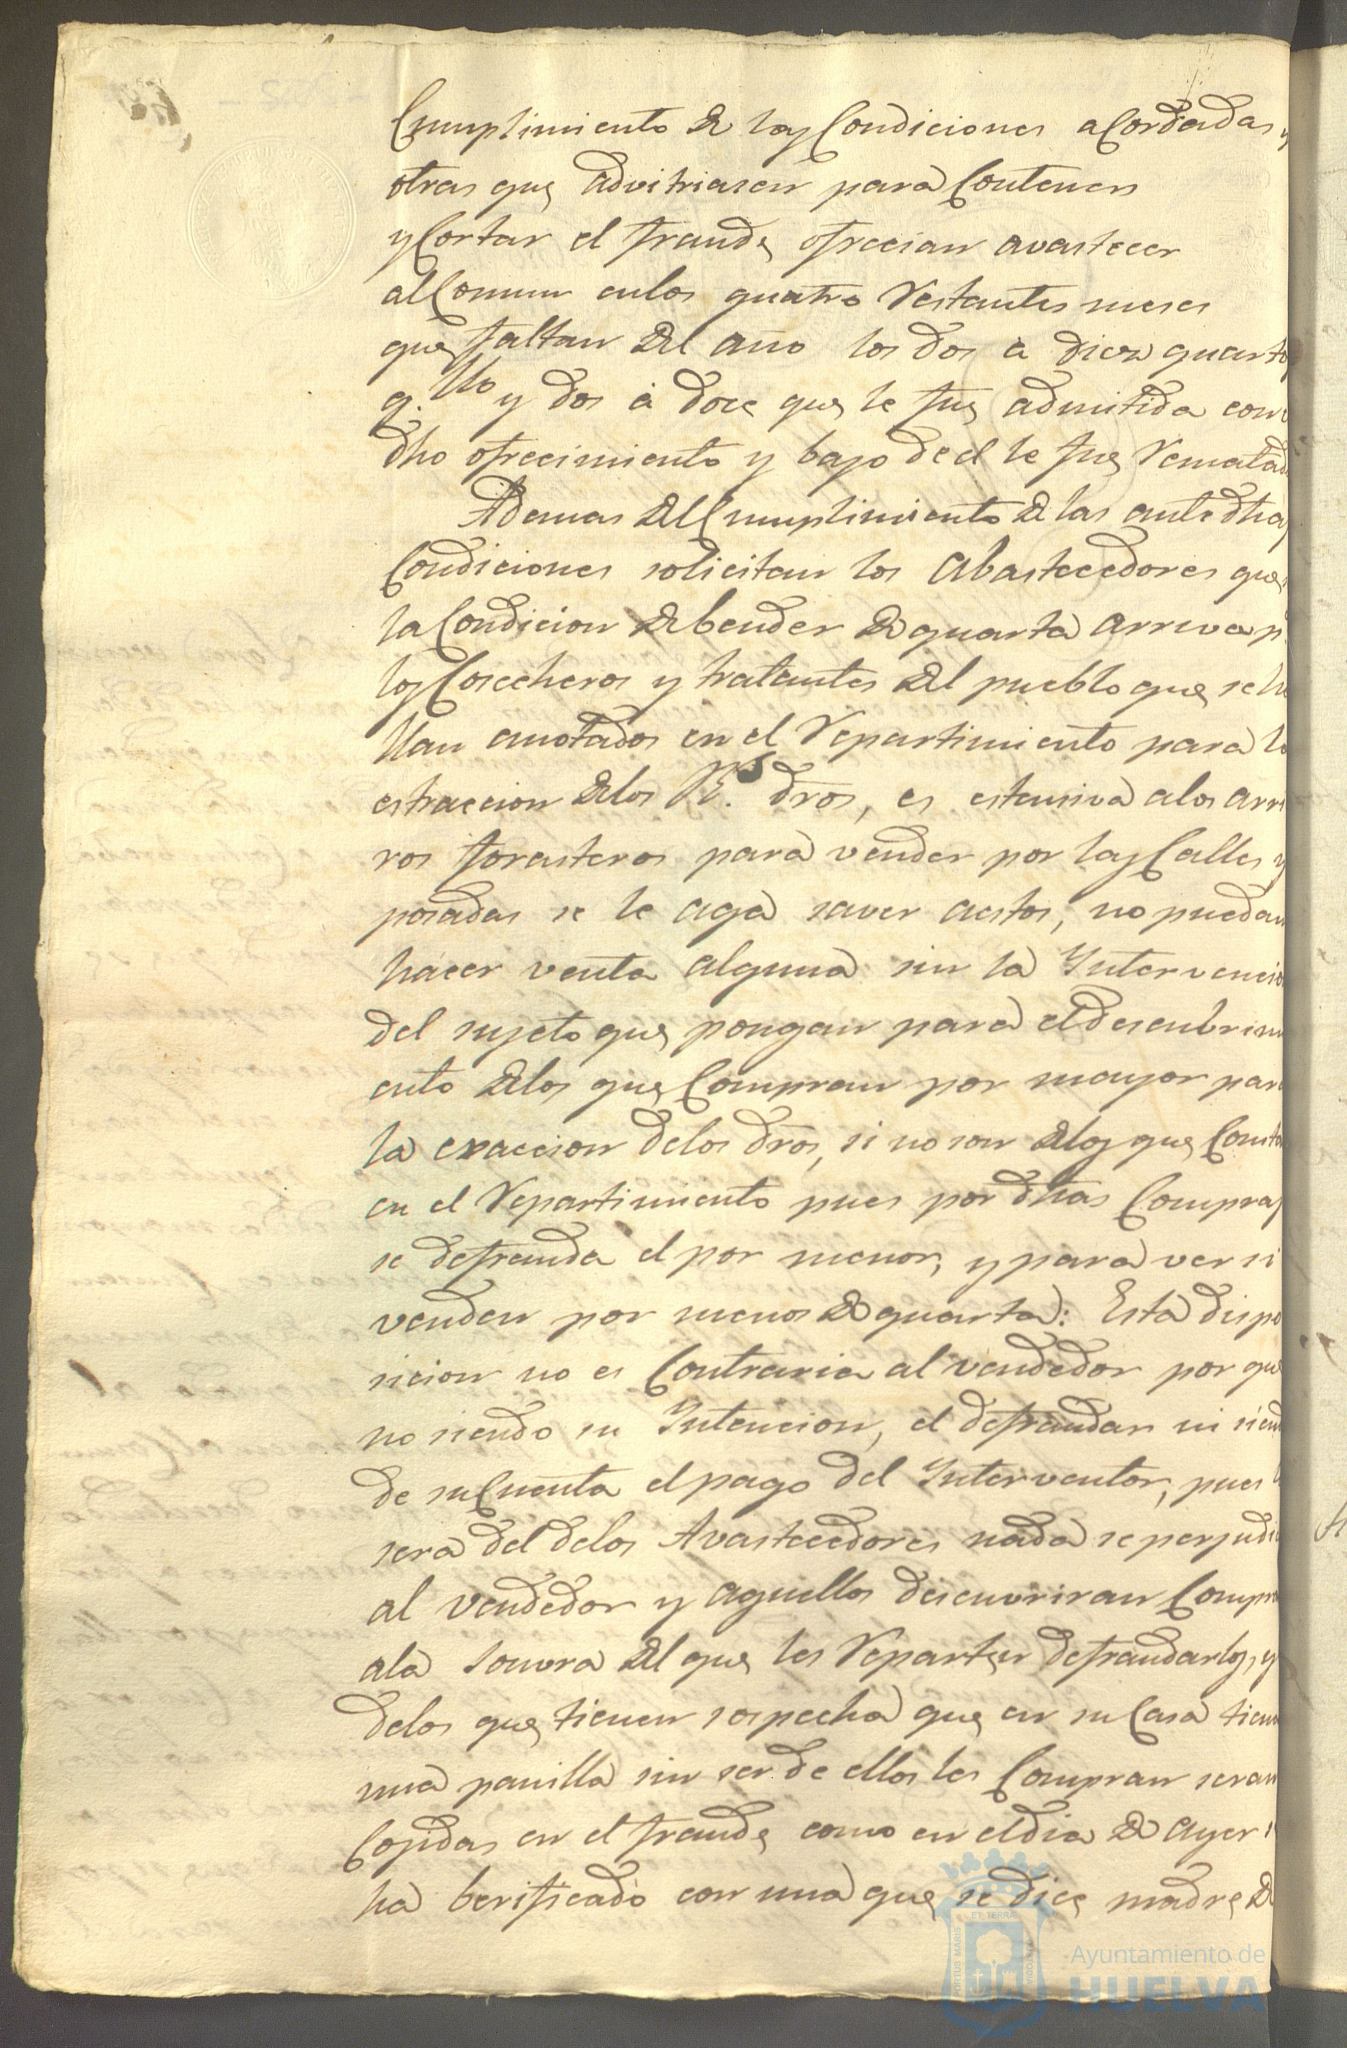 Cumplimiento de las Condiciones acordadas y
otras que advitriasen para Contener
y Cortar el fraude ofrecian avastecer
al Comun en los quatro restantes meses
que faltan del año los dos à diez quartos
q.llo y dos à doce que le fue admitida con
dho ofrecimiento y bajo de el le fue rematad
Ademas del Cumplimiento de las antedhas
Condiciones solicitan los Abastecedores que
la Condicion de bender de quarta arriva p.
los Cosecheros y tratantes del pueblo que se ha
llan anotados en el repartimiento para la
estraccion de los R.s dros, es estensiva a los arri
ros forasteros para vender por las Calles y
posadas se le aga saver a estos, no puedan
hacer venta alguna sin la Intervencio
del sujeto que pongan para el descubrimi
ento de los que Compran por mayor para
la exaccion de los dros, si no son de los que Consta
en el repartimiento pues por dhas Compras
se defrauda el por menor, y para ver si
venden por menos de quarta: Esta dispo
sicion no es Contraria al vendedor por que
no siendo su Intencion, el defraudar ni siend
de su Cuenta el pago del Interventor, pues
sera del de los Avastecedores nada se perjudi
al vendedor y aquellos descuvriran Compr
a la sonvra del que les reparten defraudarlos, y
de los que tienen sospecha que en su Casa tiene
una panilla sin ser de ellos les Compran seran
Cojidas en el fraude como en el dia de ayer s
ha berificado con una que se dice madre de
PORTUS MARIS
ET TERRÆ
CUSTODIA
Ayuntamiento de
HUELVA